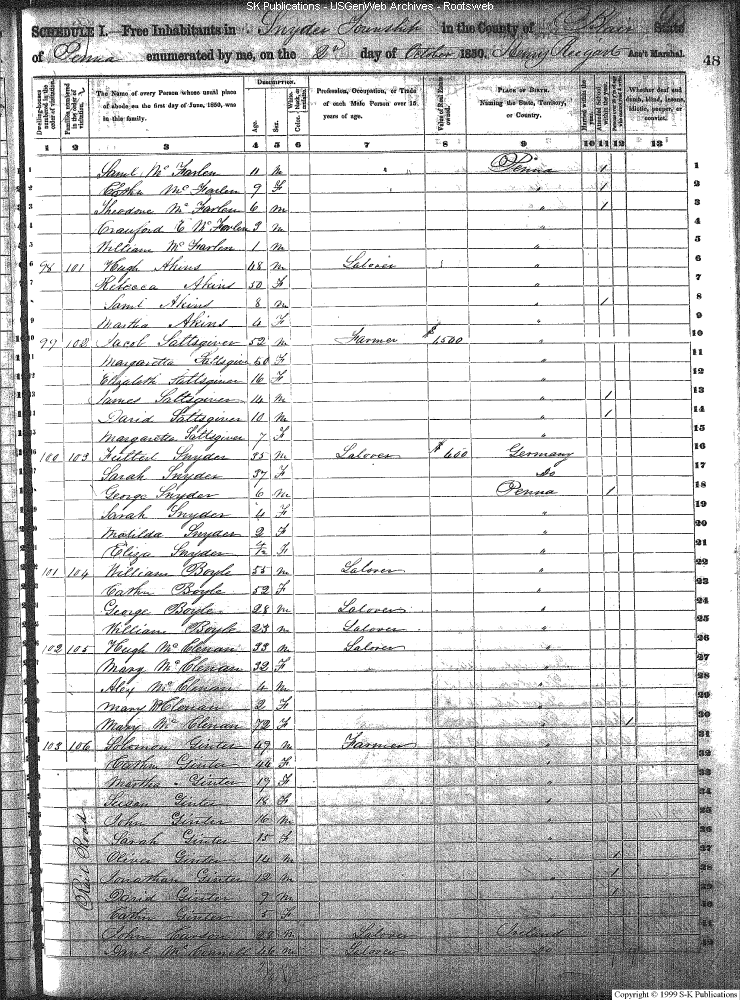 SK Publications - USGenWeb Archives - Rootsweb
SCHEDULE I.—Free Inhabitants in Snyder Township in the County of Blair State
of Penna enumerated by me, on the 2d day of October 1850. Henry Ass't Marshal.
48
Dwelling-houses numbered in the order of visitation.
Families numbered in the order of visitation.
The Name of every Person whose usual place of abode on the first day of June, 1850, was in this family.
DESCRIPTION.
Age.
Sex.
Color.
Profession, Occupation, or Trade of each Male Person over 15 years of age.
Value of Real Estate owned.
PLACE OF BIRTH. Naming the State, Territory, or Country.
Married within the year.
Attended School within the year.
Whether deaf and dumb, blind, insane, idiotic, pauper, or convict.
1 2 3 4 5 6 7 8 9 10 11 12 13
1 Saml McFarlen 11 m Penna 1 1
2 Esther McFarlen 9 F " 1 2
3 Theodore McFarlen 6 m " 1 3
4 Crawford E McFarlen 3 m " 4
5 William McFarlen 1 m " 5
6 98 101 Hugh Akins 48 m Laborer " 6
7 Rebecca Akins 50 F " 7
8 Saml Akins 8 m " 1 8
9 Martha Akins 4 F " 9
10 99 102 Jacob Saltsgiver 52 m Farmer $1,500 " 10
11 Margaretta Saltsgiver 50 F " 11
12 Elizabeth Saltsgiver 16 F " 12
13 James Saltsgiver 14 m " 1 13
14 David Saltsgiver 10 m " 1 14
15 Margaretta Saltsgiver 7 F " 15
16 100 103 Snyder 35 m Laborer $600 Germany 16
17 Sarah Snyder 37 F Do 17
18 George Snyder 6 m Penna 1 18
19 Sarah Snyder 4 F " 19
20 Matilda Snyder 2 F " 20
21 Eliza Snyder F " 21
22 101 104 William Boyle 55 m Laborer " 22
23 Cathn Boyle 52 F " 23
24 George Boyle 28 m Laborer " 24
25 William Boyle 23 m Laborer " 25
26 102 105 Hugh McClenan 33 m Laborer " 26
27 Mary McClenan 32 F " 27
28 Alex McClenan 4 m " 28
29 Mary McClenan 2 F " 29
30 Mary McClenan 72 F " 1 30
31 103 106 Solomon Ginter 49 m Farmer " 31
32 Cathn Ginter 44 F " 32
33 Martha Ginter 19 F " 33
34 Susan Ginter 18 F " 34
35 John Ginter 16 m " 35
36 Sarah Ginter 15 F " 36
37 Oliver Ginter 14 m " 1 37
38 Jonathan Ginter 12 m " 1 38
39 David Ginter 9 m " 1 39
40 Cathn Ginter 5 F " 40
41 John 28 m Laborer Ireland 41
42 46 m Laborer Do 42
Rail Road
Copyright © 1999 S-K Publications